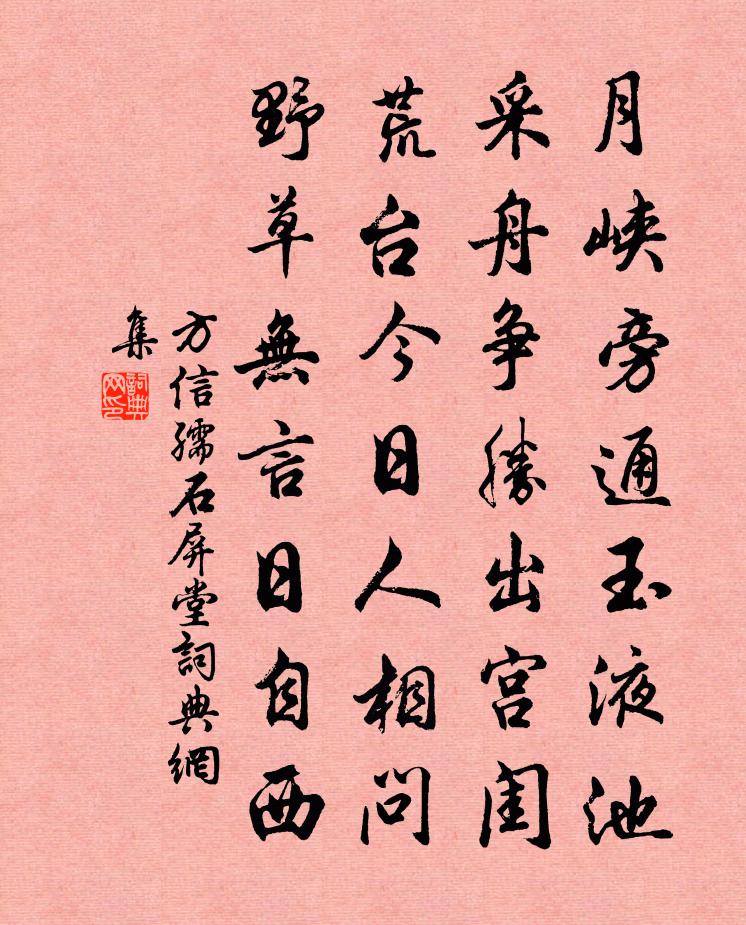 月峡旁通玉液池
采舟争勝出宫闺
荒台今日人相問
野草無言日自西
方信孺石屏堂詞典網
集
詞典
网印